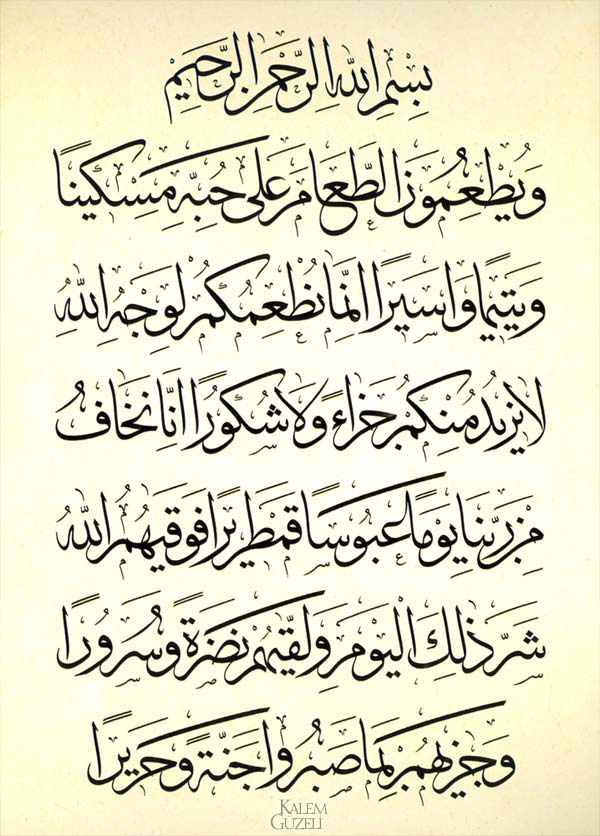 بِسْمِ اللهِ الرَّحْمٰنِ الرَّحِيمِ
وَيُطْعِمُونَ الطَّعَامَ عَلٰى حُبِّهِ مِسْكِينًا
وَيَتِيمًا وَاَسِيرًا اِنَّمَا نُطْعِمُكُمْ لِوَجْهِ اللهِ
لَا نُرِيدُ مِنْكُمْ جَزَاءً وَلَا شُكُورًا اِنَّا نَخَافُ
مِنْ رَبِّنَا يَوْمًا عَبُوسًا قَمْطَرِيرًا فَوَقٰيهُمُ اللهُ
شَرَّ ذٰلِكَ الْيَوْمِ وَلَقّٰيهُمْ نَضْرَةً وَسُرُورًا
وَجَزٰيهُمْ بِمَا صَبَرُوا جَنَّةً وَحَرِيرًا
KALEM
GÜZELİ